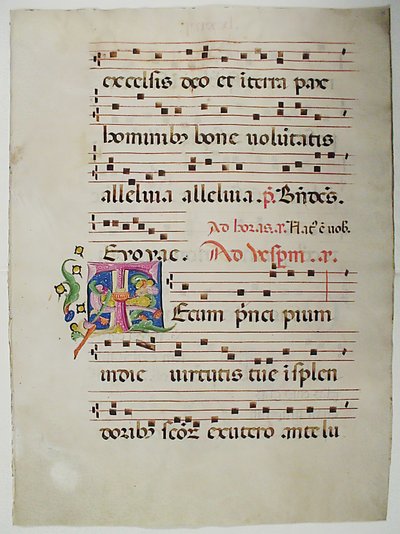 excelsis deo et ĩ terra pax
hominibʒ bone volũtatis
alleluia alleluia. p̃. Bñdc̃s.
Ad horas. a. Nat᷒ ẽ uob.
Evovae. Ad vesp̃m. a.
Tecum p̃nci pium
in die virtutis tue ĩ splen
doribʒ scoꝝ ex utero ante lu